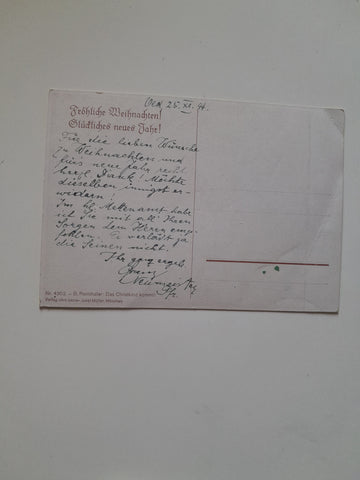 Oed 25. XII. 94.
Fröhliche Weihnachten!
Glückliches neues Jahr!
Für die lieben Wünsche
zu Weihnachten und
fürs neue Jahr recht
herzl. Dank! Möchte
dieselben innigst er-
wiedern!
Im hl. Mettenamt habe
ich Sie mit all' Ihren
Sorgen dem Herrn emp-
fohlen. Er verläßt ja
die Seinen nicht.
Ihr ganz ergeb.
Nr. 4303 – G. Reinthaler: Das Christkind kommt!
Verlag Ars sacra Josef Müller, München